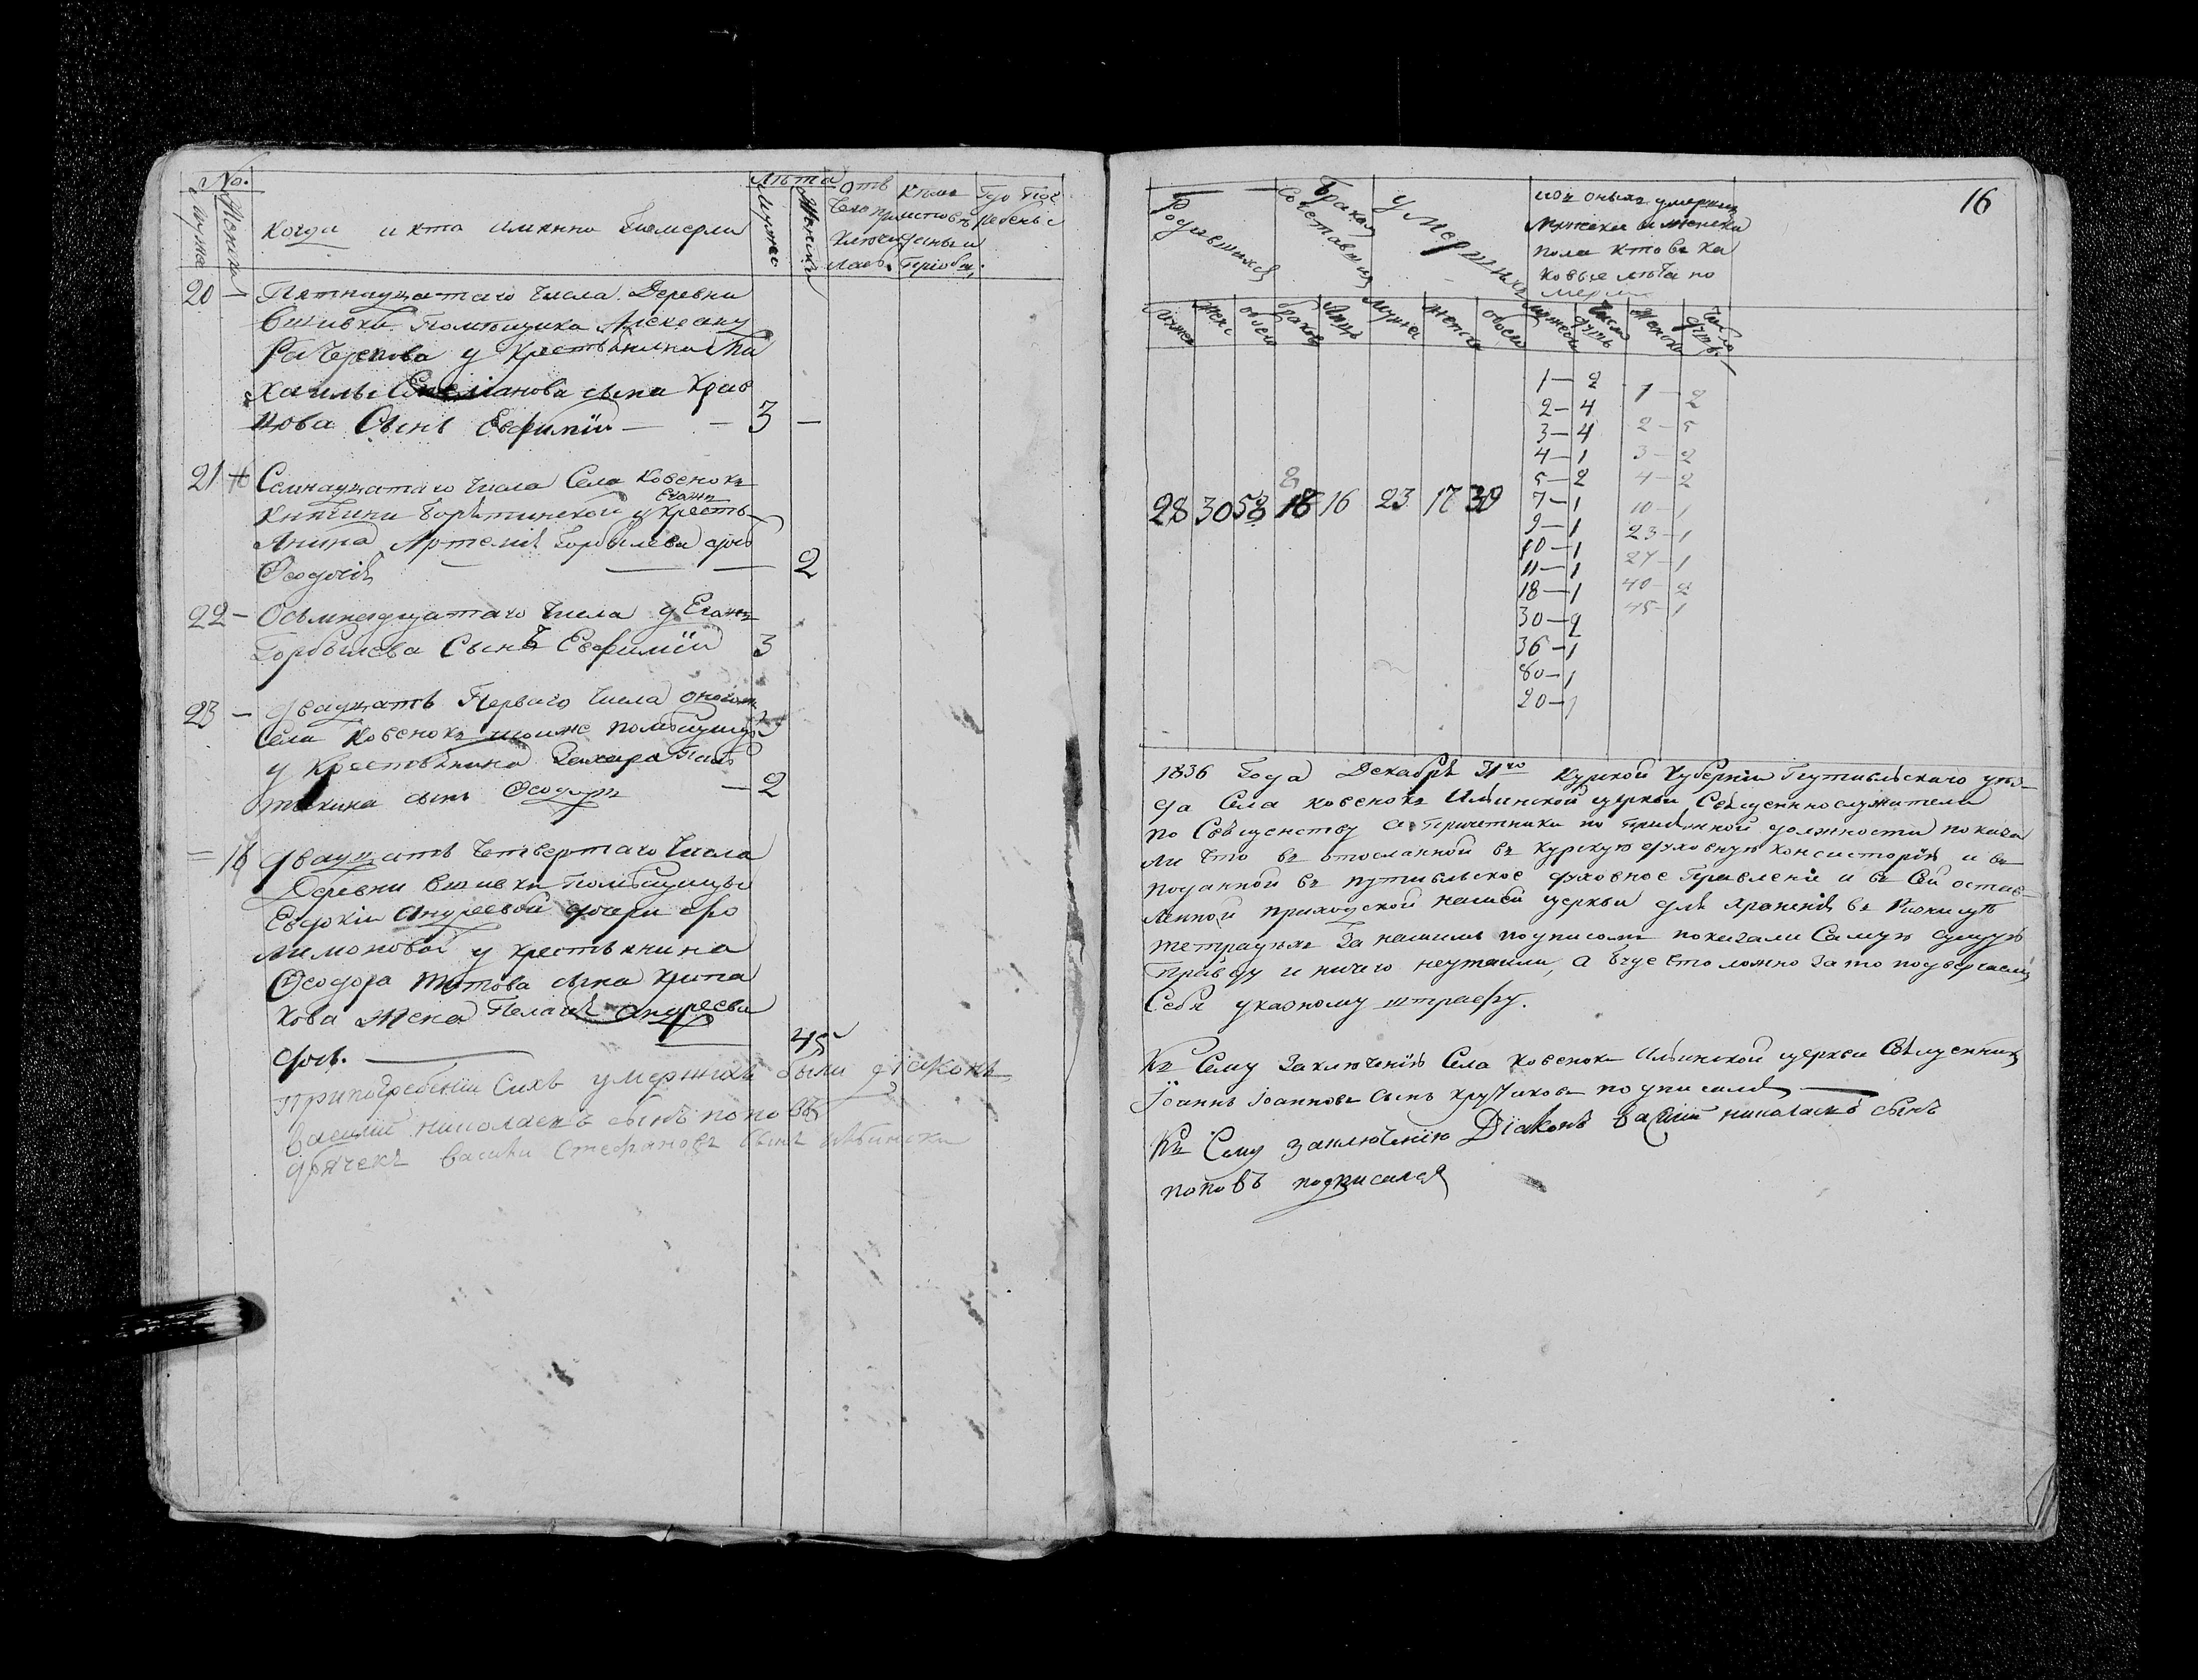 No. Лѣта Отъ Кѣмъ Гдѣ Пог
Мужа Женска Когда и кто именно Померли Мужеска Женска чего приключилась исповѣданы и пріобщ. ребены
20 — Пятнадцатаго Числа Деревни
Вшивки Помѣщика Александ
ра Черепова у Крестьянина Ми
хаилы Емеліанова сына Крав
цова Сынъ Евфимій — — 3 —
21 Семнадцатаго Числа Села Ковенокъ
Княгини Борятинской у Кресть
янина Артемія Горбылева дочь
Ѳеодосія — — 2
22 — Осьмнадцатаго Числа у
Горбылева Сынъ Евфимій 3
23 — Двадцать Перваго Числа
Села Ковенокъ тоиже помѣщицы
у Крестьянина Захара
сынъ Ѳеодоръ — 2
= 16 Двадцать Четвертаго Числа
Деревни Вшивки Помѣщицы
Евдокіи Андреевой дочери
лимоновой у крестьянина
Ѳеодора Титова сына
кова Жена Пелагія Андреева
дочь. — — 45
При погребеніи Сихъ умершихъ были діаконъ
василій николаевъ сынъ поповъ
дьячекъ василій Стефановъ сынъ
16
Родившихся Бракомъ Сочетавшихся Умершихъ изъ оныхъ умершихъ
Мужеска и женска
пола кто въ ка
ковые лѣта по
мерли
Мужеска Женс обоего браковъ Лицъ Мужеска женска обоего мужеска Число душъ Женска Число душъ
1 — 2 1 — 2
2 — 4 2 — 5
3 — 4 3 — 2
4 — 1 4 — 2
5 — 2 10 — 1
28 30 58 8 16 23 17 39
7 — 1 23 — 1
9 — 1 27 — 1
10 — 1 40 — 2
11 — 1 45 — 1
18 — 1
30 — 2
36 — 1
80 — 1
20 — 1
1836 Года Декабря 31го Курской Губерніи Путивльскаго уѣз
да Села Ковенокъ Ильинской церкви Священнослужители
по Священству а Причетники по Присяжной должности показа
ли Что въ отосланной въ курскую духовную Консисторію и въ
поданной въ путивльское духовное Правленіе и въ Сей остав
ленной приходской нашей церкви для храненія въ Ризницѣ
тетрадяхъ За нашимъ подписомъ показали Самую сущую
Правду и ничего неутаили, а буде Что ложно За то подвергаемъ
Себя указному штрафу.
Къ Сему Заключенію Села Ковенокъ Ильинской церкви Священникъ
Іоаннъ Іоанновъ Сынъ подписался
Къ Сему Заключенію Діаконъ василій николаевъ сынъ
поповъ подписался